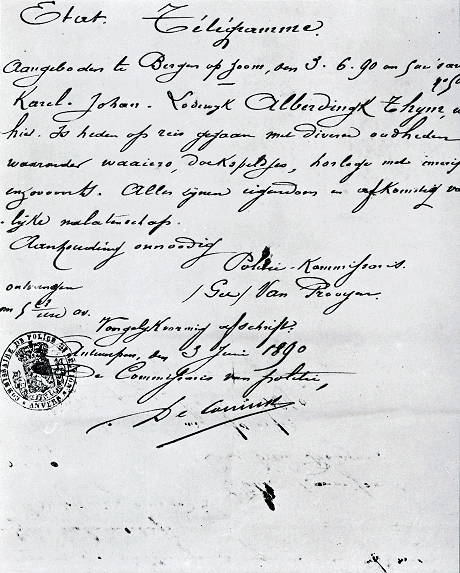 Etat. Télégramme.
Aangeboden te Bergen op Zoom, den 3. 6. 90 om 5
Karel. Johan. Lodewyk Alberdingk Thym,
hier. Is heden op reis gegaan met diverse oudheden
waaronder waaiers, doekspeldjes, horloge met
enzovoorts. Alles zijnen eigendom en afkomstig
lijke nalatenschap.
Aanhouding onnoodig
Politie-Kommissaris.
ontvangen (Get) Van Prooyen.
om 5
Vergelykvormig afschrift.
Antwerpen, den 3 Juni 1890
De Commissaris van politie,
ANVERS